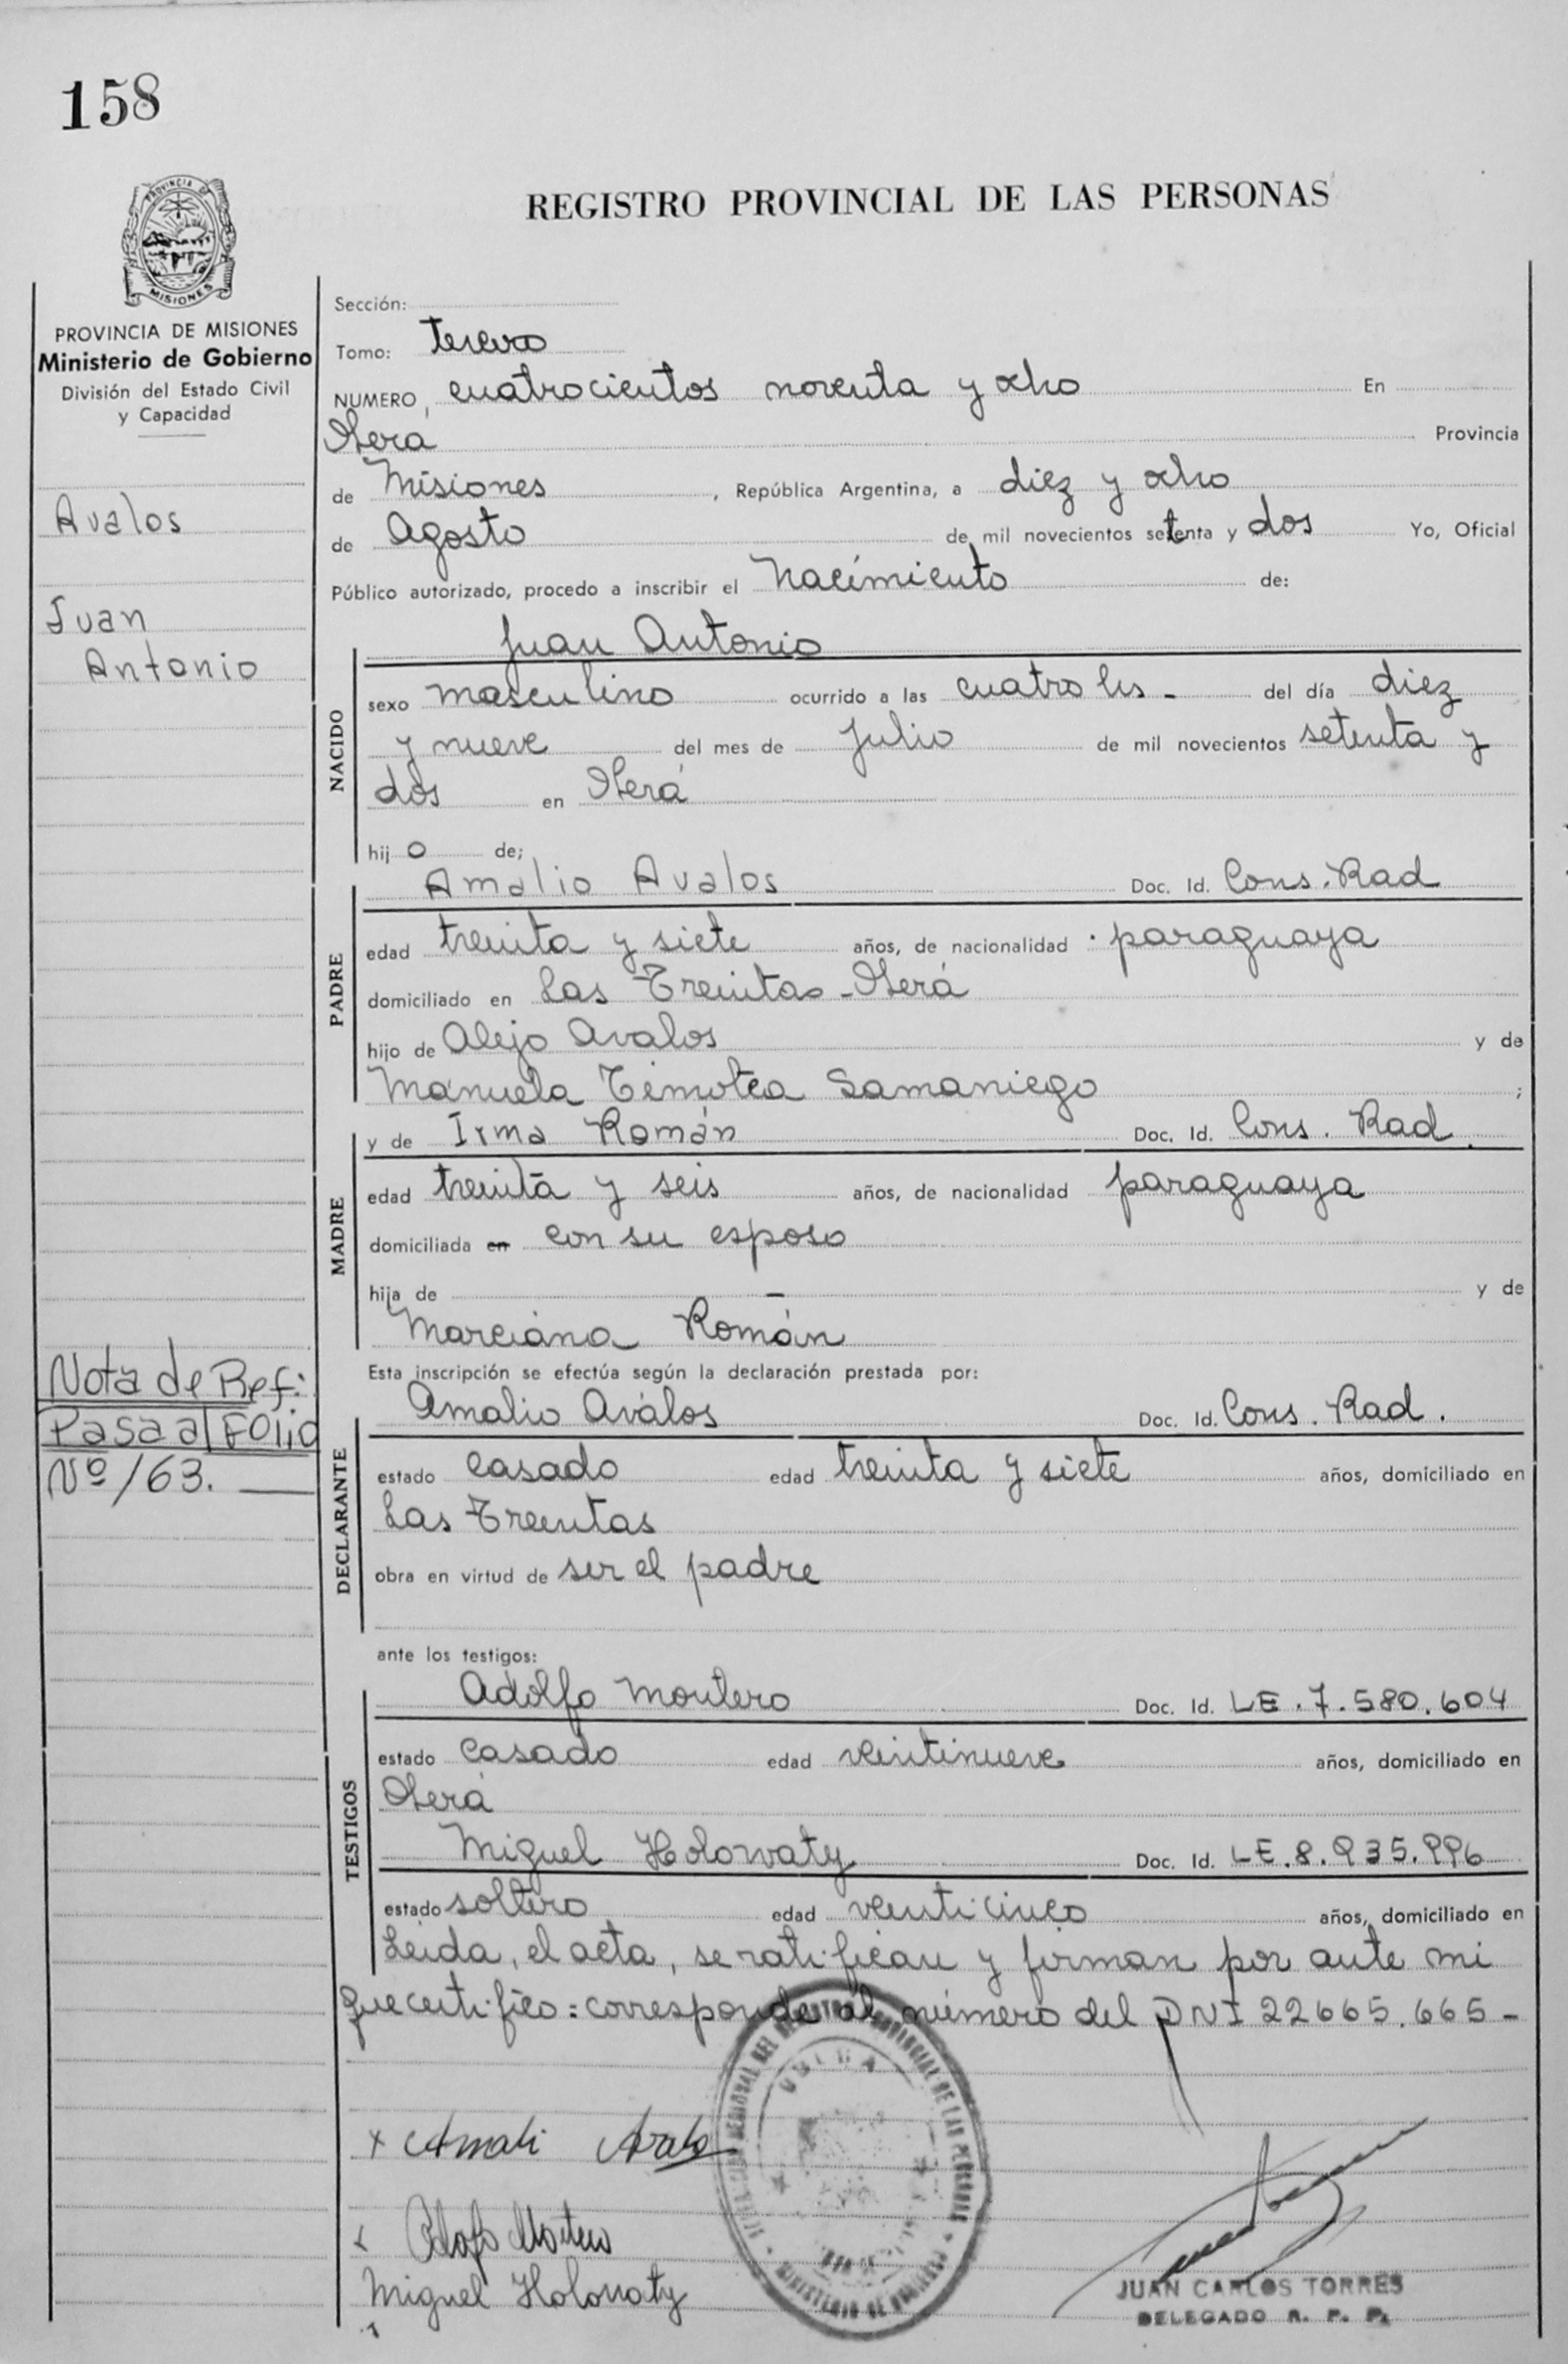 158
PROVINCIA DE MISIONES
REGISTRO PROVINCIAL DE LAS PERSONAS
PROVINCIA DE MISIONES
Ministerio de Gobierno
División del Estado Civil
y Capacidad
Avalos
Juan
Antonio
Nota de Ref:
Pasa al Folio
Nº 163.
Sección:
Tomo: tercero
NUMERO, cuatrocientos noventa y ocho En
Oberá Provincia
de Misiones, República Argentina, a diez y ocho
de Agosto de mil novecientos setenta y dos Yo, Oficial
Público autorizado, procedo a inscribir el Nacimiento de:
NACIDO
Juan Antonio
sexo masculino ocurrido a las cuatro hs - del día diez
y nueve del mes de Julio de mil novecientos setenta y
dos en Oberá
hij o de;
PADRE
Amalio Avalos Doc. Id. Cons. Rad
edad treinta y siete años, de nacionalidad paraguaya
domiciliado en Las Treintas - Oberá
hijo de Alejo Avalos y de
Manuela Timotea Samaniego ;
MADRE
y de Irma Román Doc. Id. Cons. Rad.
edad treinta y seis años, de nacionalidad paraguaya
domiciliada en con su esposo
hija de - y de
Marciana Román
Esta inscripción se efectúa según la declaración prestada por:
DECLARANTE
Amalio Avalos Doc. Id. Cons. Rad.
estado casado edad treinta y siete años, domiciliado en
Las Treintas
obra en virtud de ser el padre
ante los testigos:
TESTIGOS
Adolfo Montero Doc. Id. LE. 7.580.604
estado casado edad veintinueve años, domiciliado en
Oberá
Miguel Holowaty Doc. Id. LE. 8.935.996
estado soltero edad veinticinco años, domiciliado en
Leida, el acta, se ratifican y firman por ante mi
que certifico: corresponde al número del DNI 22665.665 -
x Amali Avalo
Adolfo Montero
Miguel Holowaty
OBERA
JUAN CARLOS TORRES
DELEGADO R. P. P.